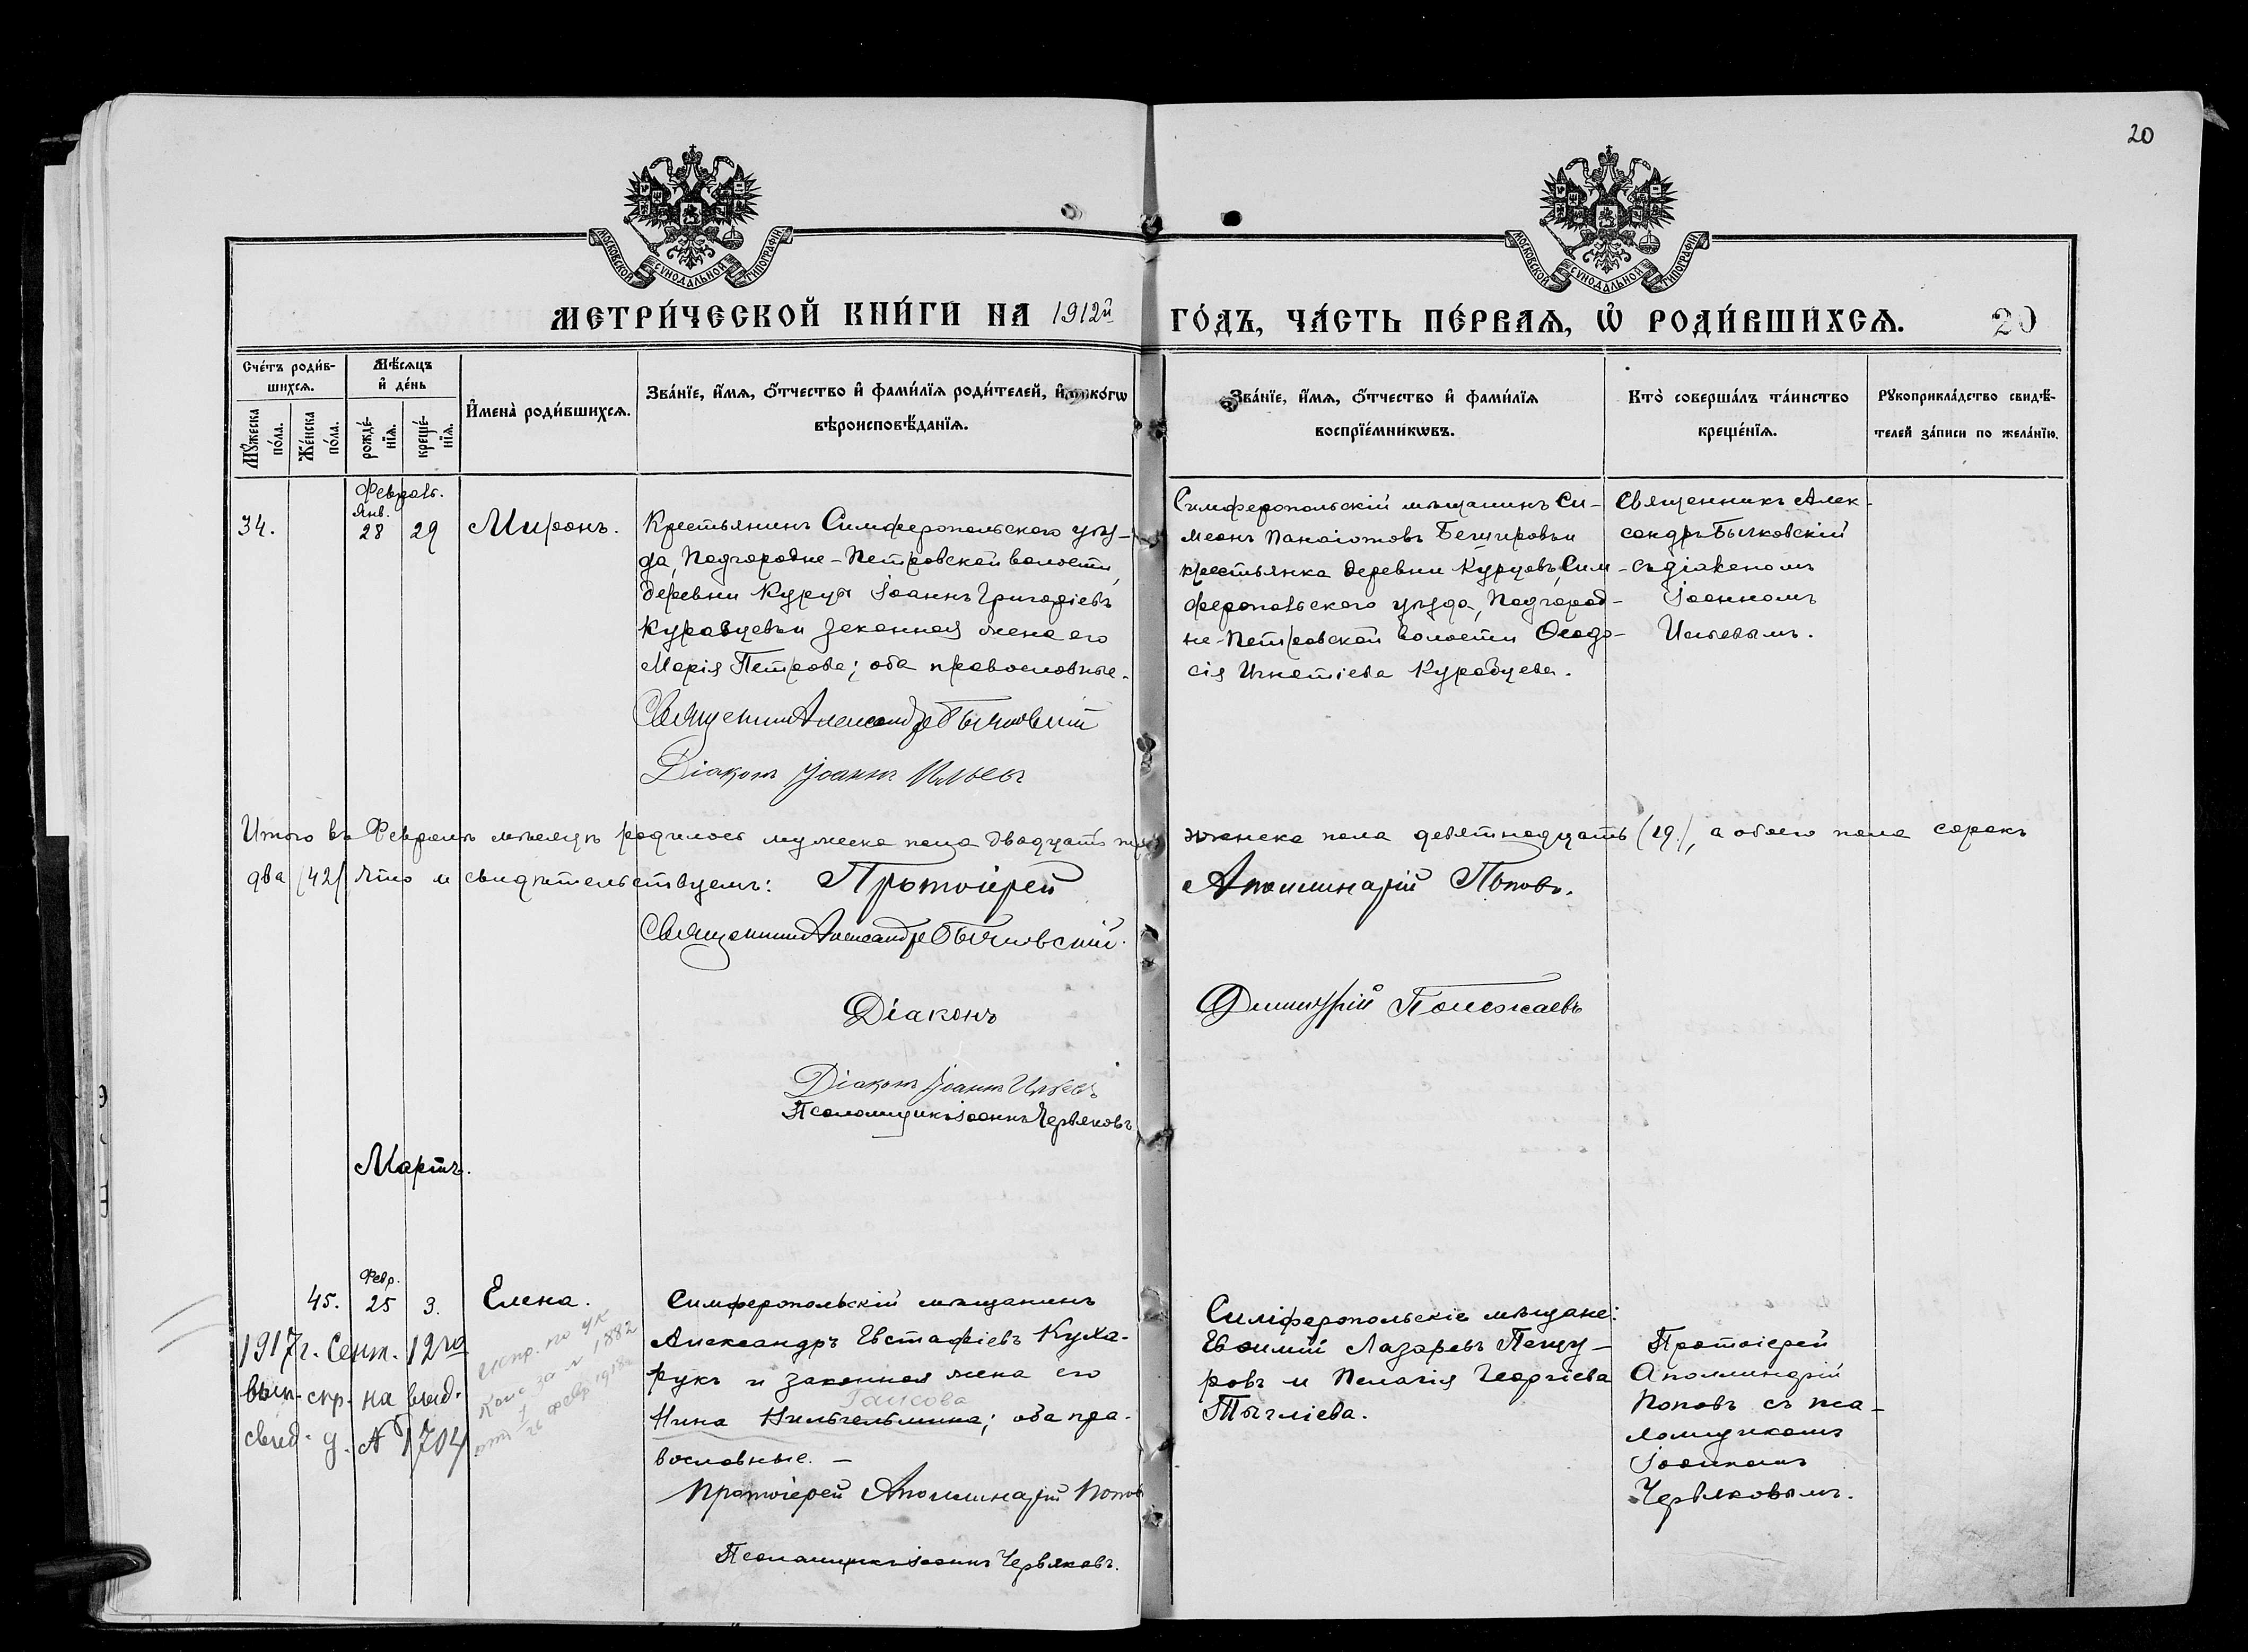 20
МОСКОВСКОЙ СѴНОДАЛЬНОЙ ТИПОГРАФІИ
МОСКОВСКОЙ СѴНОДАЛЬНОЙ ТИПОГРАФІИ
МЕТРИ́ЧЕСКОЙ КНИ́ГИ НА 1912й ГО́ДЪ, ЧА́СТЬ ПЕ́РВАѦ, Ѡ РОДИ́ВШИХСѦ. 20
Сче́тъ роди́в-
шихсѧ.
Мꙋ́жеска по́ла.
Же́нска по́ла.
Мѣ́сѧцъ
и҆ де́нь
рожде́-
нїѧ.
креще́-
нїѧ.
И҆мена̀ роди́вшихсѧ.
Зва́нїе, и҆́мѧ, ѻ҆́тчество и҆ фами́лїѧ роди́телей, и҆ како́гѡ
вѣроисповѣ́данїѧ.
Зва́нїе, и҆́мѧ, ѻ҆́тчество и҆ фами́лїѧ
воспрїе́мникѡвъ.
Кто̀ соверша́лъ та́инство
креще́нїѧ.
Рꙋкоприкла́дство свидѣ́-
телей за́писи по жела́нїю.
Февраль.
Янв.
34. 28 29 Миронъ.
Крестьянинъ Симферопольскаго уѣз-
да, Подгородне-Петровской волости,
деревни Курцы Іоаннъ Григоріевъ
Куравцевъ и законная жена его
Марія Петрова; оба православные.
Священникъ Александръ Бычковскій
Діаконъ Іоаннъ Ильевъ
Симферопольскій мѣщанинъ Си-
меонъ Панаіотовъ и
крестьянка деревни Курцовъ, Сим-
феропольского уѣзда, Подгород-
не-Петровской волости Ѳеодо-
сія Игнатіева Куравцева.
Священникъ Алек-
сандръ Бычковскій
съ діакономъ
Іоанномъ
Ильевымъ.
Итого въ Февралѣ мѣсяцѣ родилось мужеска пола двадцать три женска пола девятнадцать (19), а обоего пола сорокъ
два (42) что и свидѣтельствуемъ: Протоіерей Аполлинарій Поповъ.
Священникъ Александръ Бычковскій.
Діаконъ Димитрій Полежаевъ
Діаконъ Іоаннъ Ильевъ
Псаломщикъ Іоаннъ Червяковъ
Мартъ.
Февр.
45. 25 3. Елена.
1917 г. Сент. 12го
вып. спр. на выд.
свид. у. № 1704
испр. по ук
Конс за № 1882
26 февр 1918
Симферопольскій мѣщанинъ
Александръ Евстафіевъ Куха-
рукъ и законная жена его
Гаисова
Нина Нильгельмина; оба пра-
вославные. —
Протоіерей Аполлинарій Поповъ
Псаломщикъ Іоаннъ Червяковъ.
Симферопольскіе мѣщане:
Евѳимій Лазаревъ Пещу-
ровъ и Пелагія Георгіева
Протоіерей
Аполлинарій
Поповъ съ пса-
ломщикомъ
Іоанномъ
Червяковымъ.